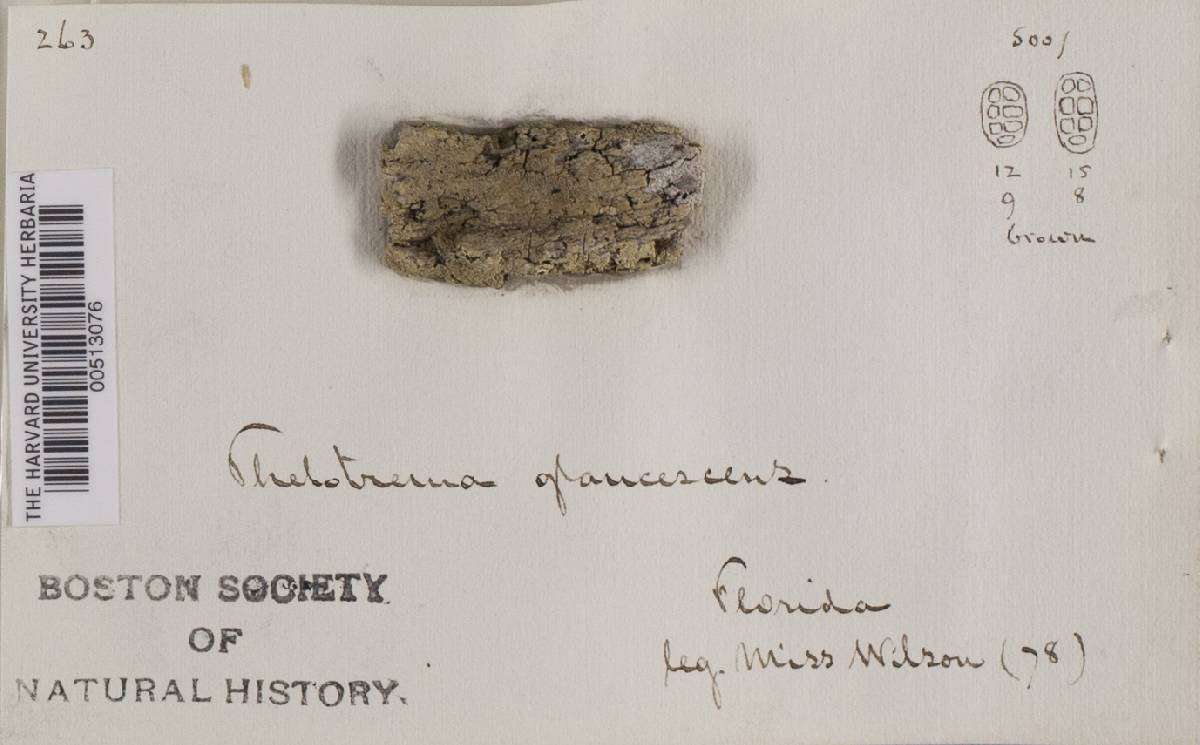 263
500/
12 15
9 8
brown
THE HARVARD UNIVERSITY HERBARIA
00513076
Thelotrema glaucescens.
BOSTON SOCIETY
OF
NATURAL HISTORY.
Florida
leg. Miss Wilson (78)